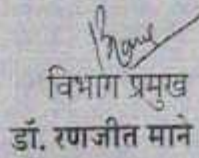 विभाग प्रमुख
डॉ. रणजीत माने